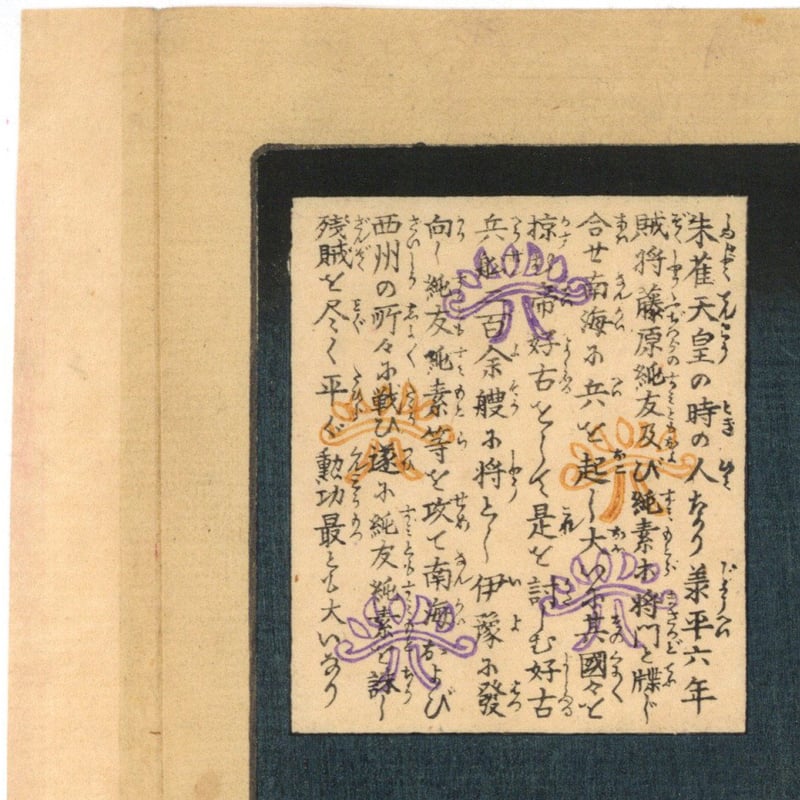 朱雀天皇の時の人なり承平六年
賊将藤原純友及び純素等将門と牒じ
合せ南海に兵を起し大いに其國々を
掠む帝好古をして是を討しむ好古
兵船二百余艘に将とし伊豫に發
向し純友純素等を攻て南海および
西州の所々に戦ひ遂に純友純素を誅し
残賊を尽く平ぐ勲功最とも大いなり